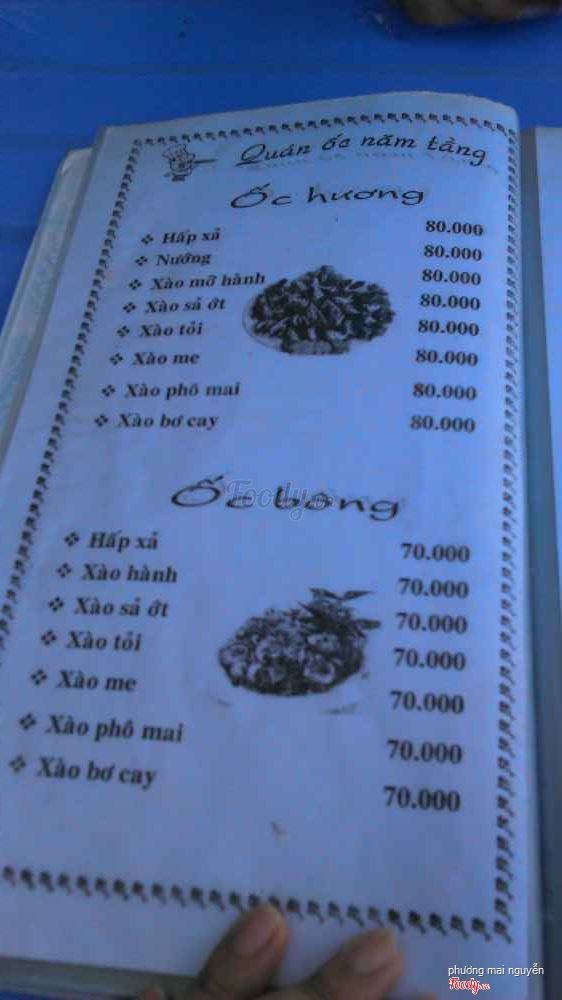 Quán ốc năm tầng
Ốc hương
❖ Hấp xả 80.000
❖ Nướng 80.000
❖ Xào mỡ hành 80.000
❖ Xào sả ớt 80.000
❖ Xào tỏi 80.000
❖ Xào me 80.000
❖ Xào phô mai 80.000
❖ Xào bơ cay 80.000
Ốc bông
Foody
❖ Hấp xả 70.000
❖ Xào hành 70.000
❖ Xào sả ớt 70.000
❖ Xào tỏi 70.000
❖ Xào me 70.000
❖ Xào phô mai 70.000
❖ Xào bơ cay 70.000
phương mai nguyễn
Foody.vn